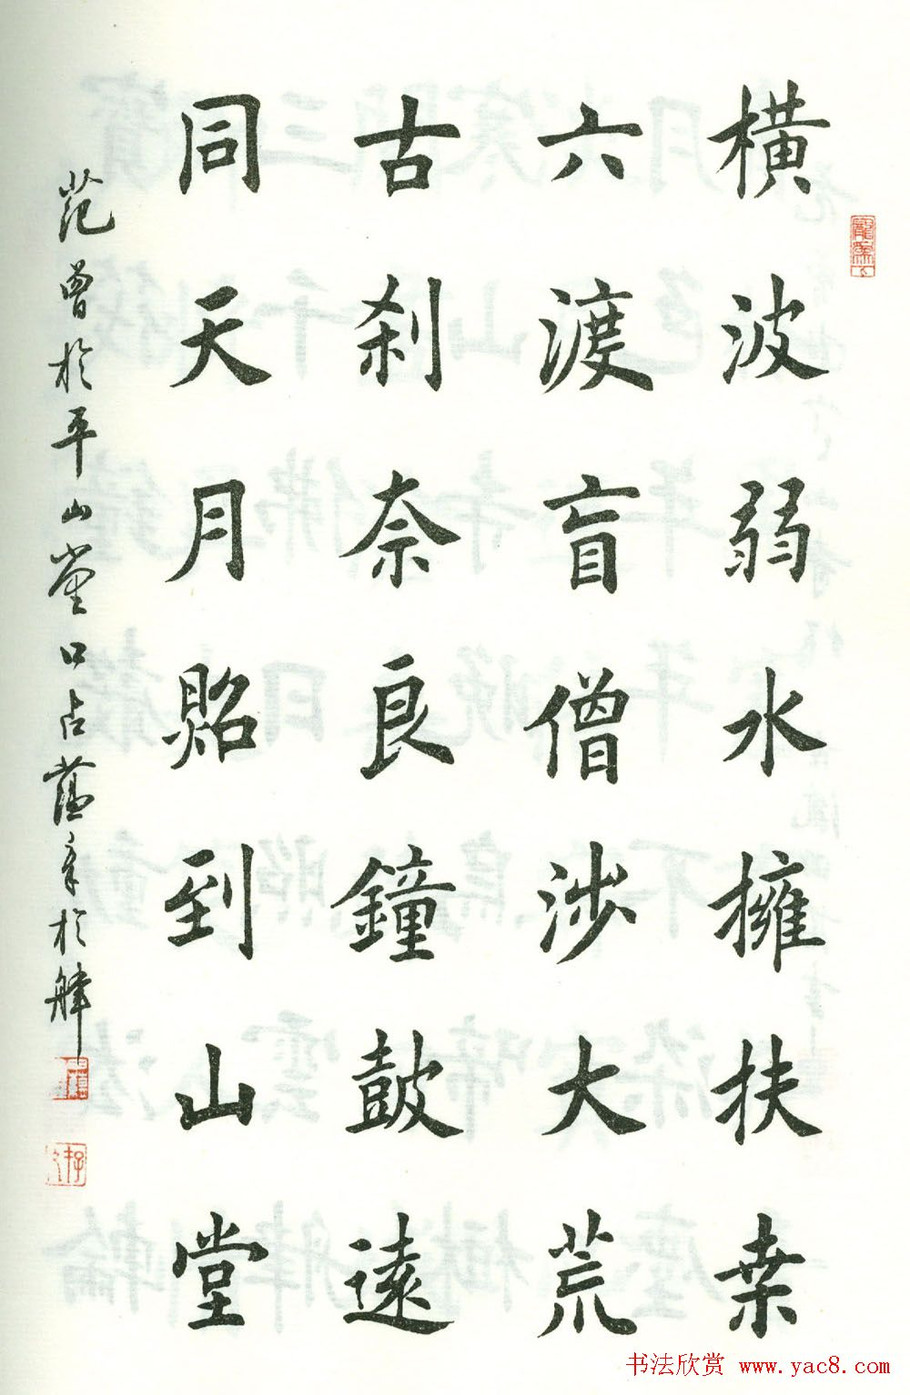 橫波弱水擁扶桒
六渡盲僧涉大荒
古刹奈良鐘鼓遠
同天月照到山堂
范曾於平山堂口占蕴章於舽
书法欣赏 www.yac8.com